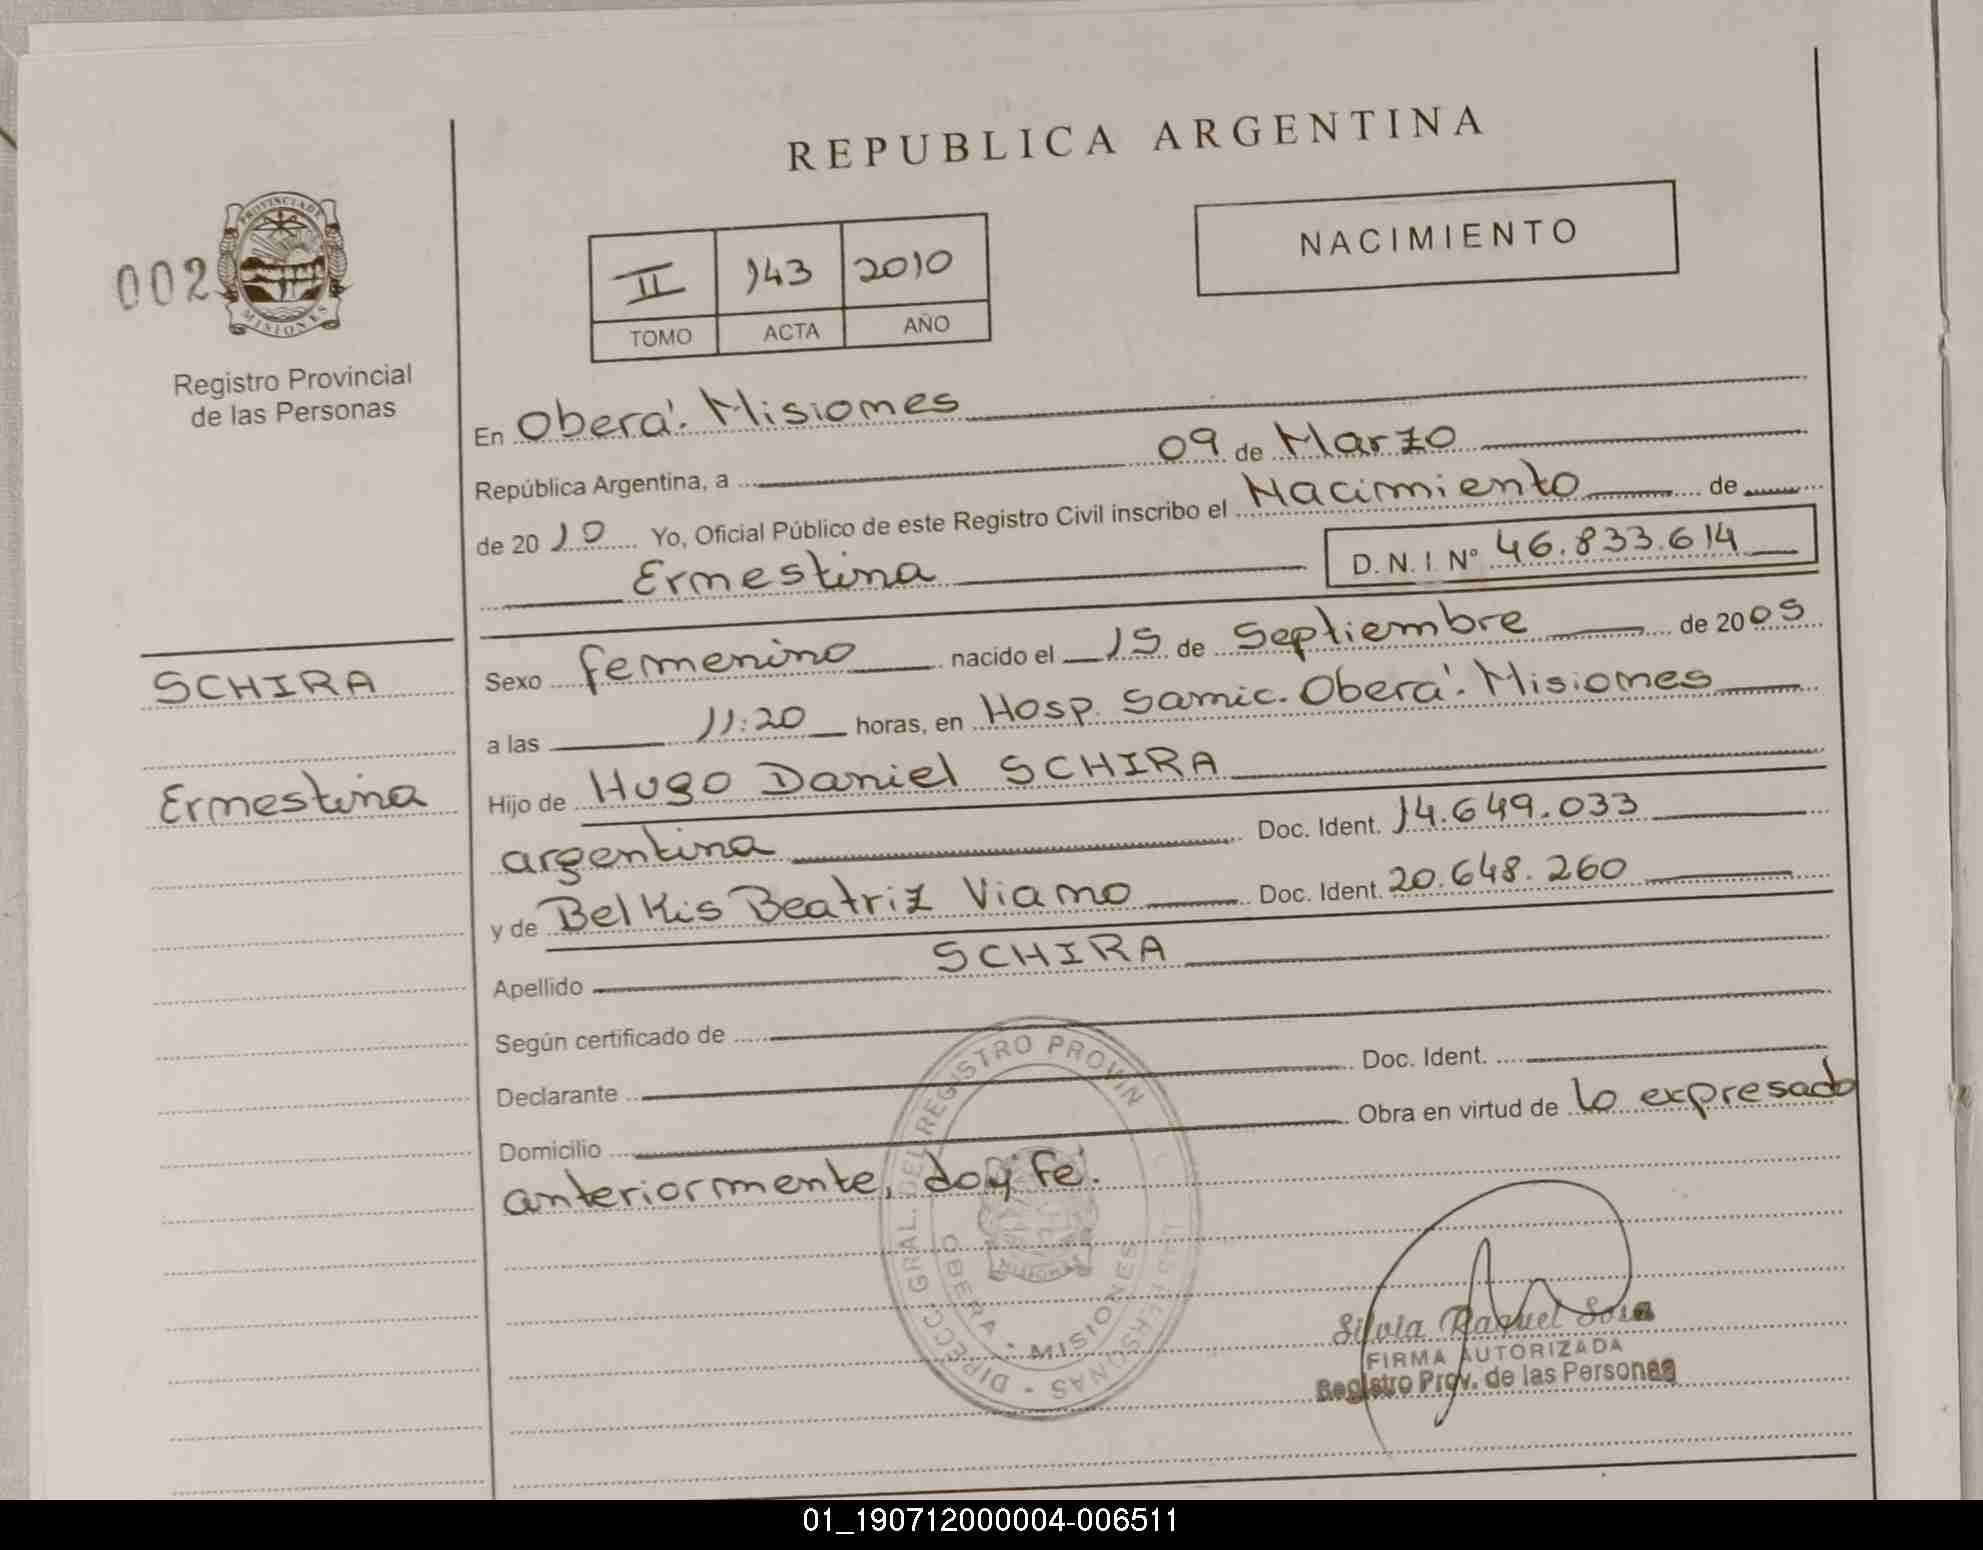 REPUBLICA ARGENTINA
002
PROVINCIA DE
MISIONES
Registro Provincial
de las Personas
II 143 2010
TOMO ACTA AÑO
NACIMIENTO
En Oberá. Misiones
República Argentina, a 09 de Marzo
de 2010 Yo, Oficial Público de este Registro Civil inscribo el Nacimiento de
Ernestina D.N.I. Nº 46.833.614
SCHIRA
Ernestina
Sexo femenino nacido el 15 de Septiembre de 2005
a las 11:20 horas, en Hosp. Samic. Oberá. Misiones
Hijo de Hugo Daniel SCHIRA
argentina Doc. Ident. 14.649.033
y de Belkis Beatriz Viano Doc. Ident. 20.648.260
Apellido SCHIRA
Según certificado de
Declarante Doc. Ident.
Domicilio Obra en virtud de lo expresado
anteriormente, doy fé.
DIRECC. GRAL. DEL REGISTRO PROVIN PERSONAS
OBERA - MISIONES
Silvia Raquel Sosa
FIRMA AUTORIZADA
Registro Prov. de las Personas
01_190712000004-006511